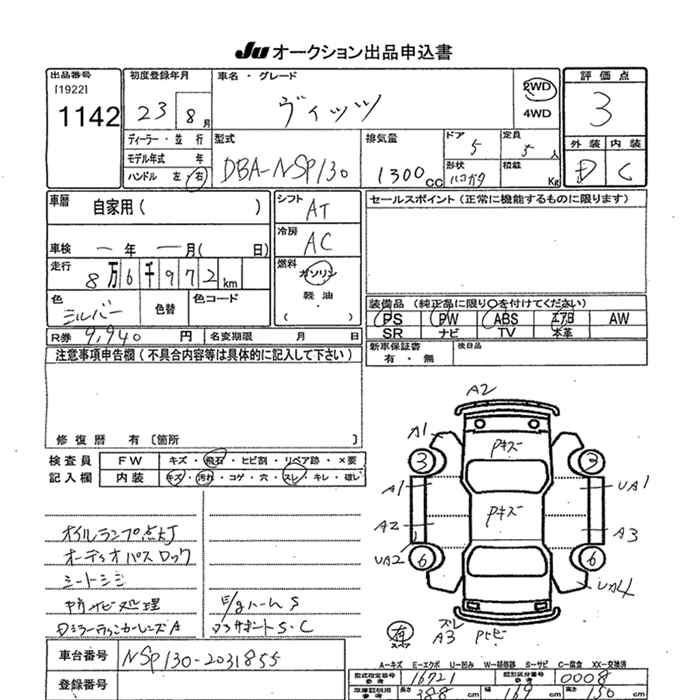 Ju オークション出品申込書
出品番号 初度登録年月 車名・グレード 評価点
[1922]
1142 23 8月 ヴィッツ 2WD 3
4WD
ディーラー・並行 型式 排気量 ドア 5 定員 5人 外装 内装
モデル年式 年 DBA-NSP130 1300cc 形状 ハコガタ 積載 Kg D C
ハンドル 左・右
車暦 自家用( ) シフト AT セールスポイント(正常に機能するものに限ります)
冷房 AC
車検 一年 一月( 日)
走行 8万6千972km 燃料 ガソリン
軽油
( )
色 シルバー 色替 色コード 装備品 (純正品に限り○を付けてください)
PS PW ABS エアB AW
SR ナビ TV 本革
R券 9,940 円 名変期限 月 日 新車保証書 後日品
有・無
注意事項申告欄(不具合内容等は具体的に記入して下さい)
修復歴 有 〔箇所 〕
検査員 FW キズ・飛石・ヒビ割・リペア跡・×要
記入欄 内装 キズ・汚れ・コゲ・穴・スレ・キレ・破レ
A2
A1 Pキズ
3 3
A1 UA1
A2 Pキズ A3
UA2
6 6
UA4
ズレ
A3 Pヒビ
有
オイルランプ点灯
オーディオパスロック
シートシミ
サビ処理 E/gハームS
DミラーウィンカーレンズA S・C
車台番号 NSP130-2031855
登録番号
A-キズ E-エクボ U-凹み W-補修跡 S-サビ C-腐食 XX-交換済
型式指定番号 参考 16721 類別区分番号 参考 0008
長さ 388cm 幅 169cm 高さ 150cm